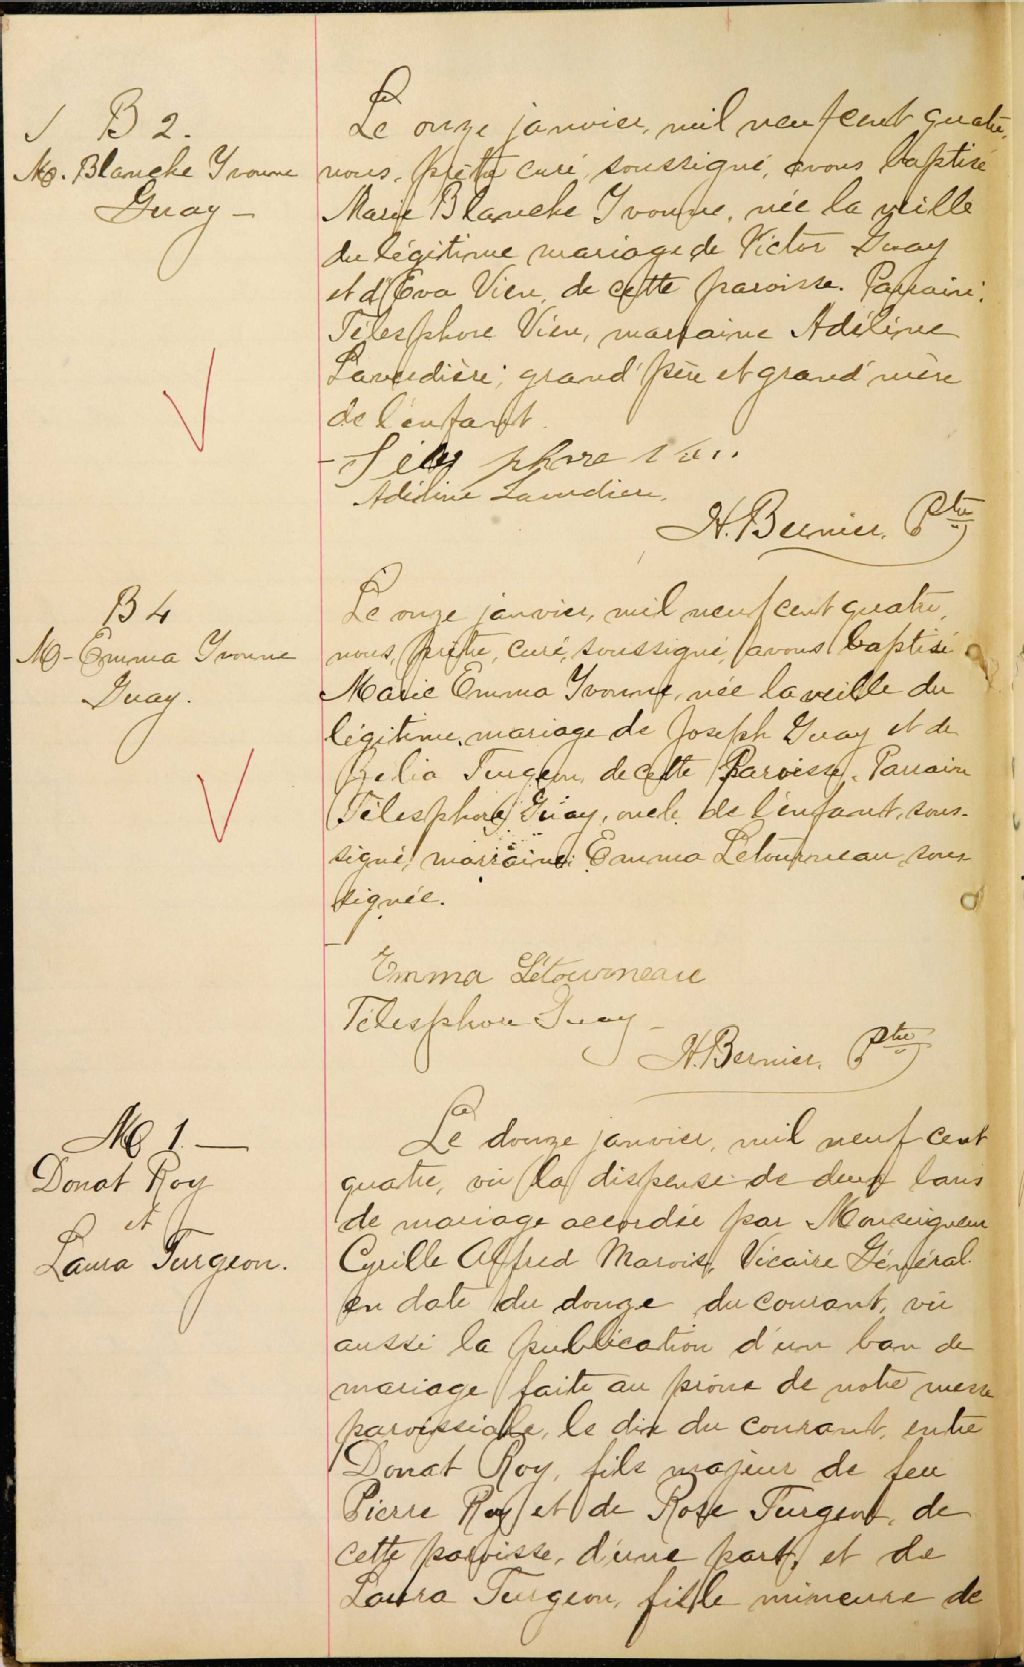 B 2.
M. Blanche Yvonne
Guay -
Le onze janvier, mil neuf cent quatre,
nous, prêtre curé, soussigné, avons baptisé
Marie Blanche Yvonne, née la veille
du légitime mariage de Victor Guay
et d'Eva Vien, de cette paroisse. Parrain:
Télesphore Vien, marraine Adéline
Laverdière; grand'père et grand'mère
de l'enfant.
Télesphore Vien
Adéline Laverdière.
H. Bernier. Ptre
B 4
M - Emma Yvonne
Guay.
Le onze janvier, mil neuf cent quatre,
nous, prêtre, curé, soussigné, avons baptisé
Marie Emma Yvonne, née la veille du
légitime mariage de Joseph Guay et de
Zelia Turgeon, de cette Paroisse. Parrain
Télesphore Guay, oncle de l'enfant, sous-
signé, marraine: Emma Letourneau, sous-
signée.
Emma Létourneau
Télesphore Guay
H. Bernier. Ptre
M 1.
Donat Roy
et
Laura Turgeon.
Le douze janvier, mil neuf cent
quatre, vu la dispense de deux bans
de mariage accordée par Monseigneur
Cyrille Alfred Marois, Vicaire Général
en date du douze du courant, vu
aussi la publication d'un ban de
mariage faite au prône de notre messe
paroissiale, le dix du courant, entre
Donat Roy, fils majeur de feu
Pierre Roy et de Rose Turgeon, de
cette paroisse, d'une part, et de
Laura Turgeon, fille mineure de